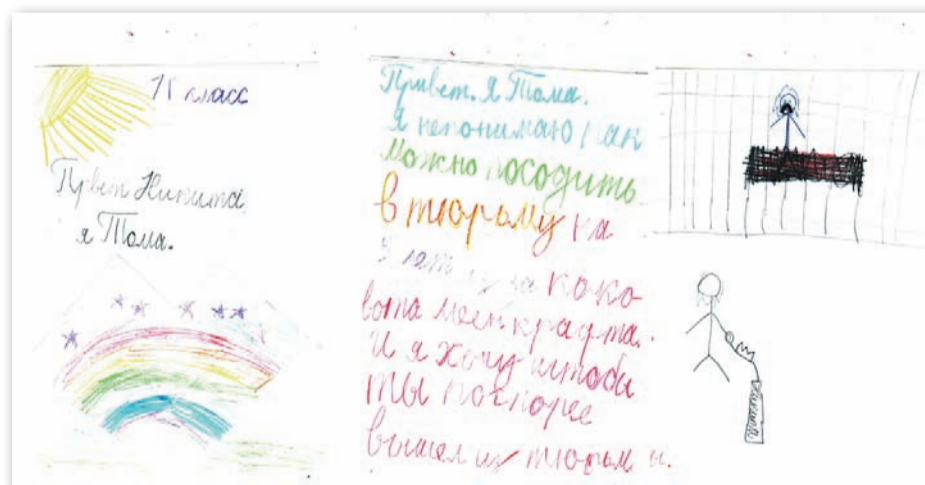 1Г класс
Првет Никита,
я Тома.
Привет. Я Тома.
Я непонимаю как
можно посодить
в тюрьму на
5 лет из за како
вота маенкрафта.
И я хочу штобы
ты поскорее
вышел из тюрьмы.